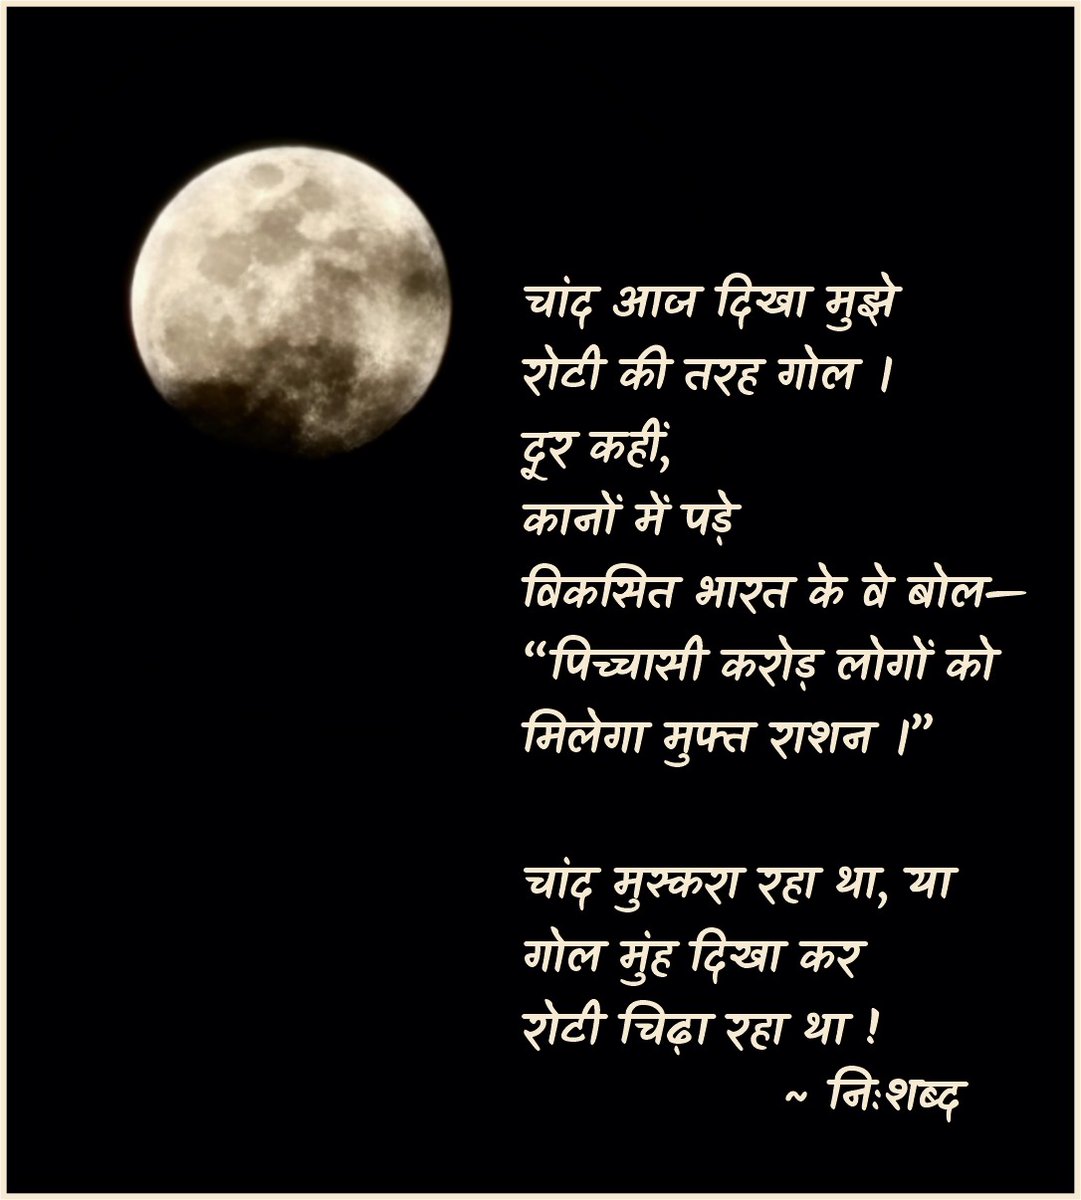 चांद आज दिखा मुझे
रोटी की तरह गोल ।
दूर कहीं,
कानों में पड़े
विकसित भारत के वे बोल—
“पिच्चासी करोड़ लोगों को
मिलेगा मुफ्त राशन ।”
चांद मुस्करा रहा था, या
गोल मुंह दिखा कर
रोटी चिढ़ा रहा था !
~ निःशब्द